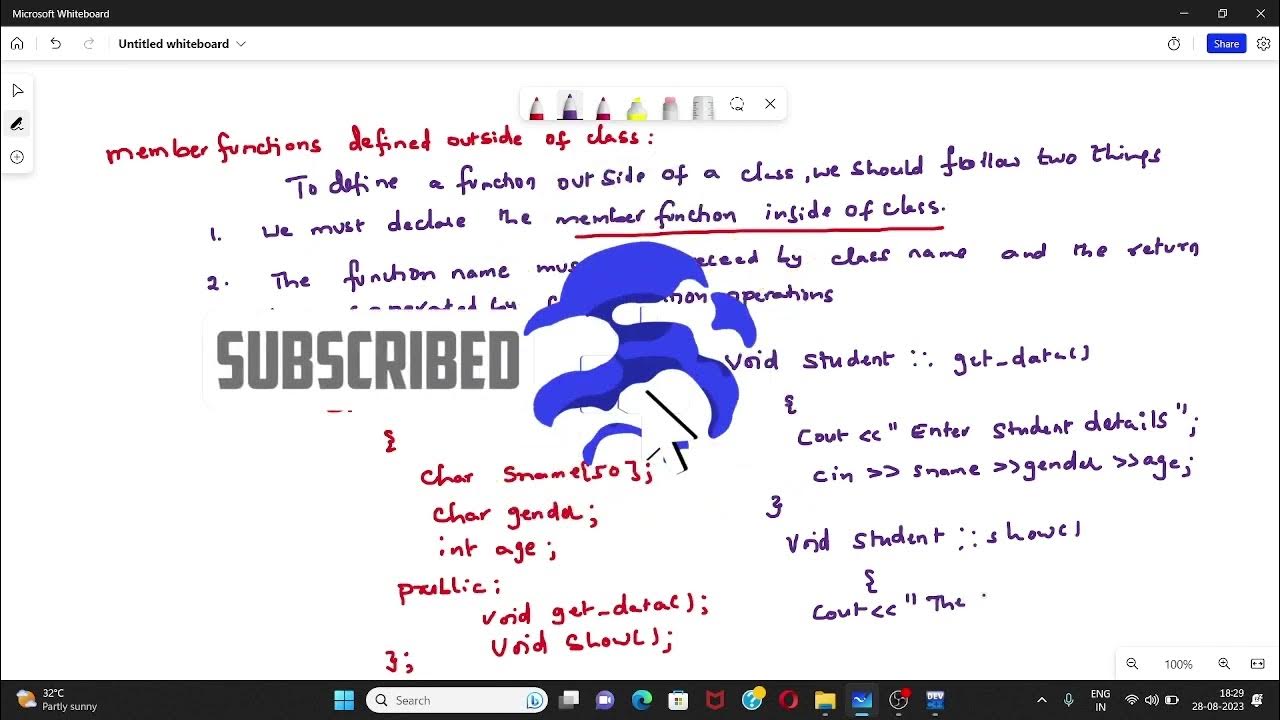 Microsoft Whiteboard
Untitled whiteboard
Share
member functions defined outside of class:
To define a function outside of a class, we should follow two things
1. we must declare the member function inside of class.
2. The function name must by class name and the return
operations
SUBSCRIBED
void student :: get_data()
{
{
cout << " Enter student details ";
char sname[50];
cin >> sname >> gender >> age;
char gender;
}
int age;
void student :: show()
public:
{
void get_data();
cout << " The
void show();
};
100%
32°C
Partly sunny
Search
DEV
ENG
IN
18:29
28-08-2023